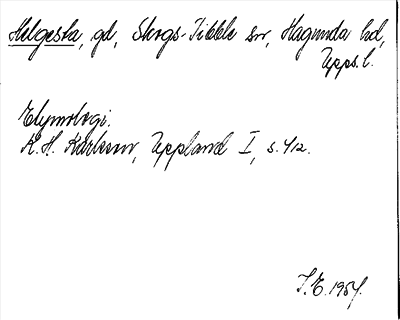 Helgesta, gd, Skogs-Tibble sn, Hagunda hd,
Upps. l.
Etymologi.
K. H. Karlsson, Uppland I, s. 412.
I. E. 1954.